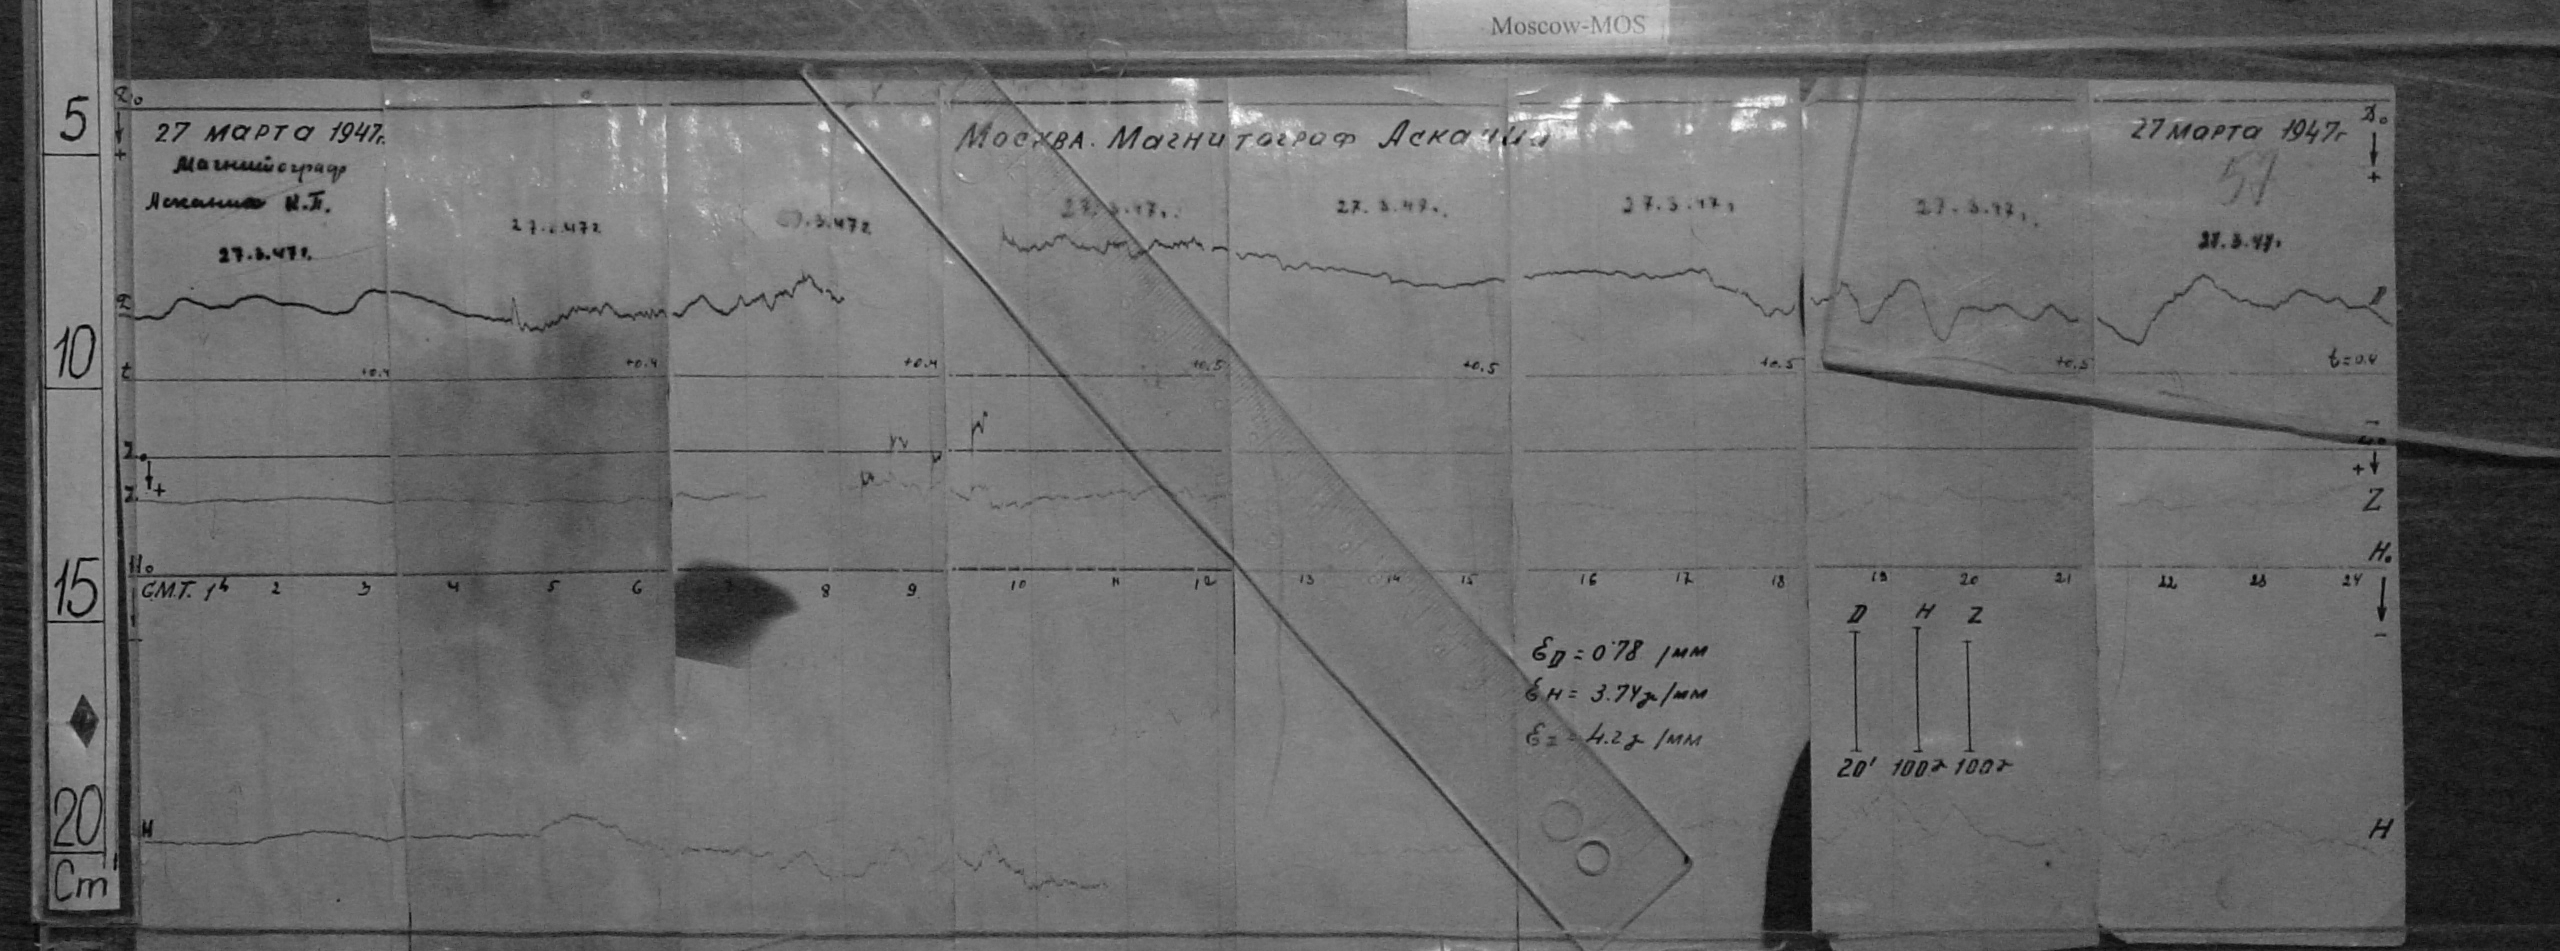 Moscow-MOS
5
27 МАРТА 1947г.
Москва. Магнитограф Аскания
27 МАРТА 1947г
D₀
+
Магнитограф
Аскания К.П.
51
27.3.47г.
27.3.47г
27.3.47г
27.3.47г.
27.3.47г.
27.3.47г.
27.3.47г.
27.3.47г.
D
10
t
+0.4
+0.4
+0.4
+0.5
+0.5
+0.5
+0.5
t=0.4
Z₀
+
Z
-
Z₀
+
Z
15
H₀
H₀
G.M.T. 1h 2 3 4 5 6 7 8 9 10 11 12 13 14 15 16 17 18 19 20 21 22 23 24
-
D H Z
20' 100γ 100γ
ƐD = 0'78 /мм
ƐH = 3.74γ/мм
ƐZ = 4.2γ /мм
20
Cm
H
H